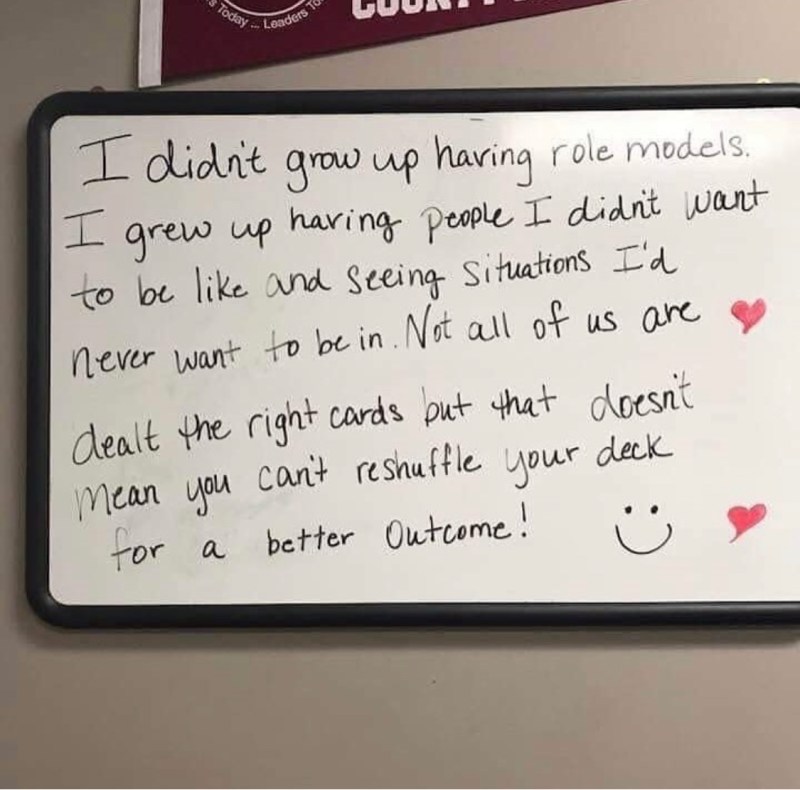 Today ... Leaders
I didn't grow up having role models.
I grew up having people I didn't want
to be like and seeing situations I'd
never want to be in. Not all of us are
dealt the right cards but that doesn't
mean you can't reshuffle your deck
for a better outcome!